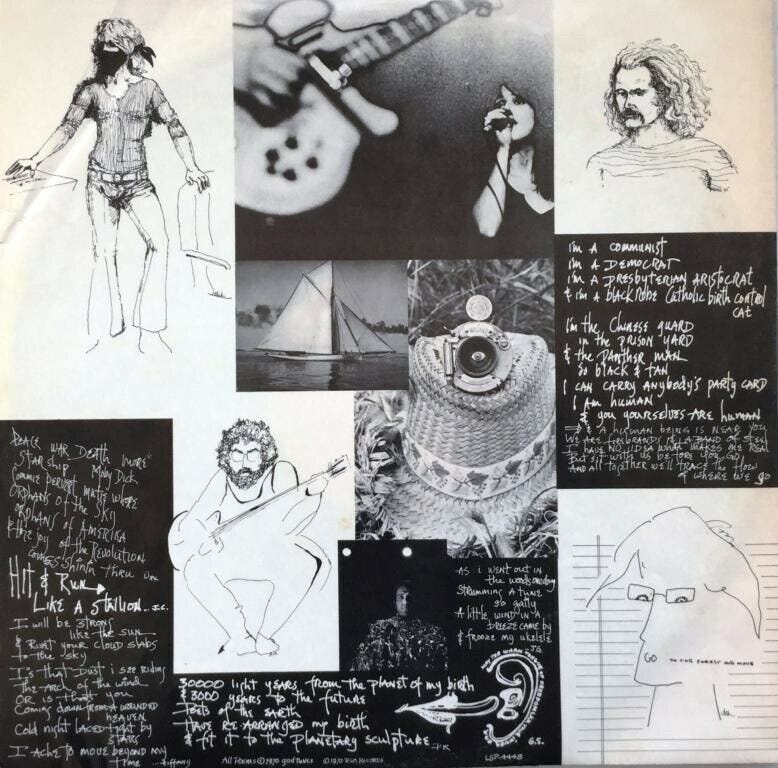 I'm A COMMUNIST
I'm A DEMOCRAT
I'm A PRESBYTERIAN ARISTOCRAT
& I'm A BLACK ROBE CATHOLIC BIRTH CONTROL
CAT
I'm THE CHINESE GUARD
IN THE PRISON YARD
& THE PANTHER MAN
SO BLACK & TAN
I CAN CARRY ANYBODY'S PARTY CARD
I AM HUMAN
& YOU YOURSELVES ARE HUMAN
& A HUMAN BEING IS NEAR YOU
WE ARE FIREBRANDS & A BAND OF STEEL
I HAVE NO IDEA WHAT MAKES ME REAL
BUT SIT WITH US BEFORE YOU GO
AND ALL TOGETHER WE'LL TRACE THE FLOW
OF WHERE WE GO
PEACE WAR DEATH MORE
STAR SHIP MOBY DICK
COMMIE PERVERT
ORPHANS OF THE SKY
ORPHANS OF AMERIKA
& THE JOY OF THE REVOLUTION
COMES SHININ THRU
HIT & RUN
LIKE A STALLION .. J.C.
I WILL BE STRONG
LIKE THE SUN
& RIVET YOUR CLOUD SHADS
TO THE SKY
IS THAT DUST I SEE RIDING
THE ARCH OF THE WIND
OR IS THAT YOU
COMING DOWN FROM A WOUNDED
HEAVEN
COLD NIGHT LACED TIGHT BY
STARS
I ACHE TO MOVE BEYOND MY
TIME ...
AS I WENT OUT IN
THE WOODS ONE DAY
STRUMMING A TUNE
SO GAILY
A LITTLE WIND IN A
BREEZE CAME BY
& FROZE MY UKELELE
JG
30000 light years from the planet of my birth
& 3000 years to the future
Poets of the earth
Have re-arranged my birth
& fit it to the planetary sculpture .. PK
G.S.
GO TO THE FOREST AND MOVE
All Poems © 1970 God Tunes © 1970 RCA Records
LSP-4448